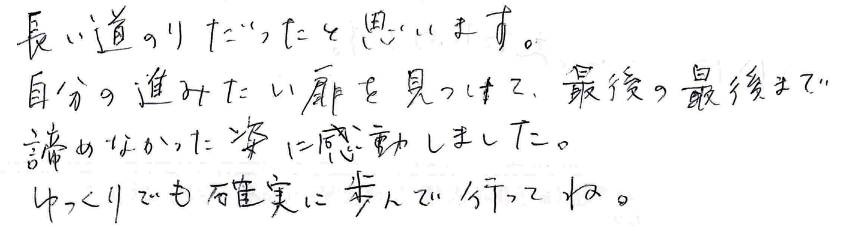 長い道のりだったと思います。
自分の進みたい扉を見つけて、最後の最後まで
諦めなかった姿に感動しました。
ゆっくりでも確実に歩んで行ってね。